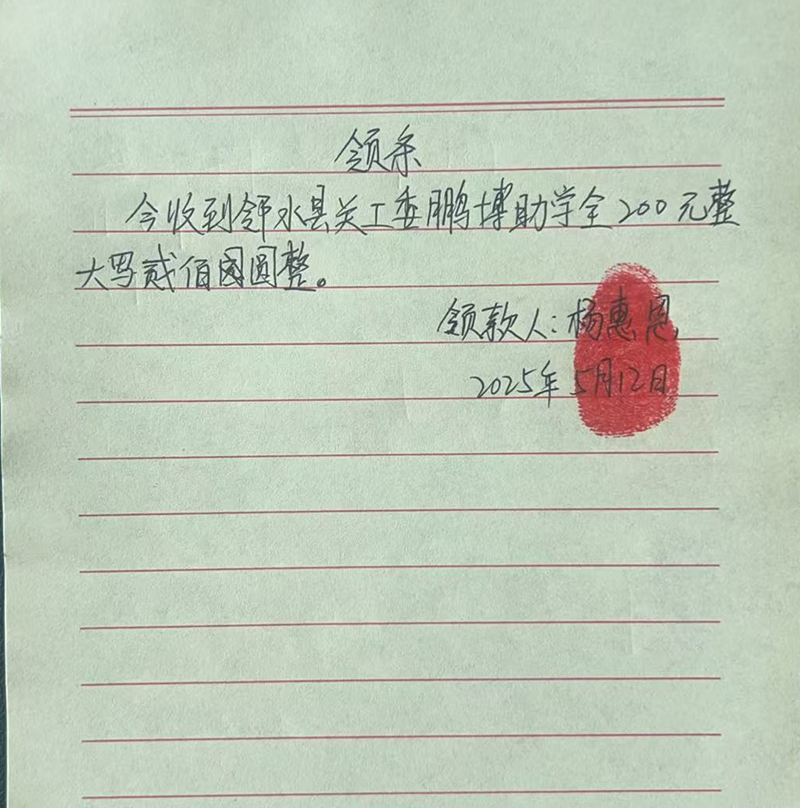 领条
今收到邻水县关工委鹏博助学金200元整
大写贰佰圆整。
领款人:杨惠恩
2025年5月12日